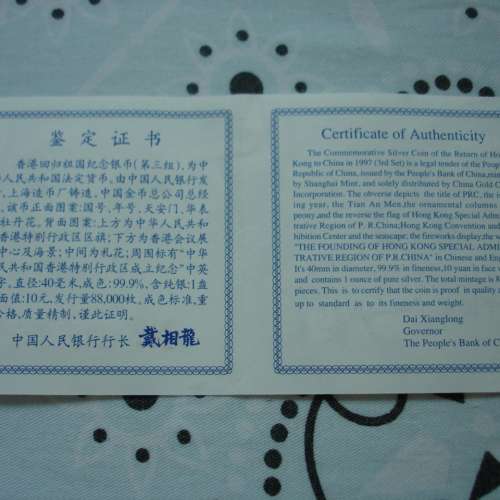 鉴定证书
香港回归祖国纪念银币(第三组),为中
人民共和国法定货币,由中国人民银行发
,上海造币厂铸造,中国金币总公司总经
。该币正面图案:国号、年号、天安门、华表
牡丹花。背面图案:上方为中华人民共和
香港特别行政区区旗;下方为香港会议展
中心及海景;中间为礼花;周围标有“中华
民共和国香港特别行政区成立纪念”中英
字,直径:40毫米,成色:99.9%,含纯银:1盎
面值:10元,发行量88,000枚,成色标准,重
合格,质量精制,谨此证明。
中国人民银行行长 戴相龍
Certificate of Authenticity
The Commemorative Silver Coin of the Return of Ho
Kong to China in 1997 (3rd Set) is a legal tender of the Peop
Republic of China, issued by the People's Bank of China,
by Shanghai Mint, and solely distributed by China Gold C
Incorporation. The obverse depicts the title of PRC, the
ing year, the Tian An Men, the ornamental columns
peony, and the reverse the flag of Hong Kong Special Adm
trative Region of P. R.China, Hong Kong Convention and
hibition Center and the seascape, the fireworks display, the
"THE FOUNDING OF HONG KONG SPECIAL ADM
TRATIVE REGION OF P.R.CHINA" in Chinese and Eng
It's 40mm in diameter, 99.9% in fineness, 10 yuan in face
and contains 1 ounce of pure silver. The total mintage is
pieces. This is to certify that the coin is proof in quality
up to standard as to its fineness and weight.
Dai Xianglong
Governor
The People's Bank of C